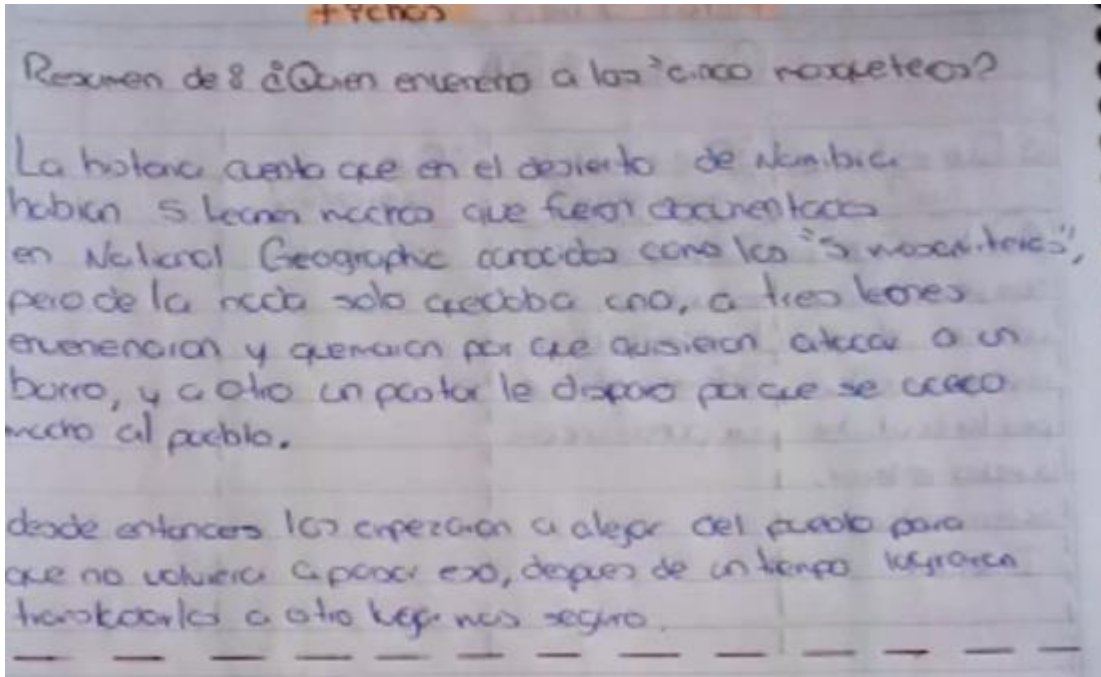 fichas
Resumen de: ¿Quien enveneno a los "cinco mosqueteros?
La historia cuenta que en el desierto de Namibia
habian 5 leones machos que fueron documentados
en National Geographic conocidos como los "5 mosqueteros",
pero de la nada solo quedaba uno, a tres leones
envenenaron y quemaron por que quisieron atacar a un
burro, y a otro un pastor le disparo porque se acerco
mucho al pueblo.
desde entonces los empezaron a alejar del pueblo para
que no volviera a pasar eso, despues de un tiempo lograron
trasladarlos a otro lugar mas seguro.